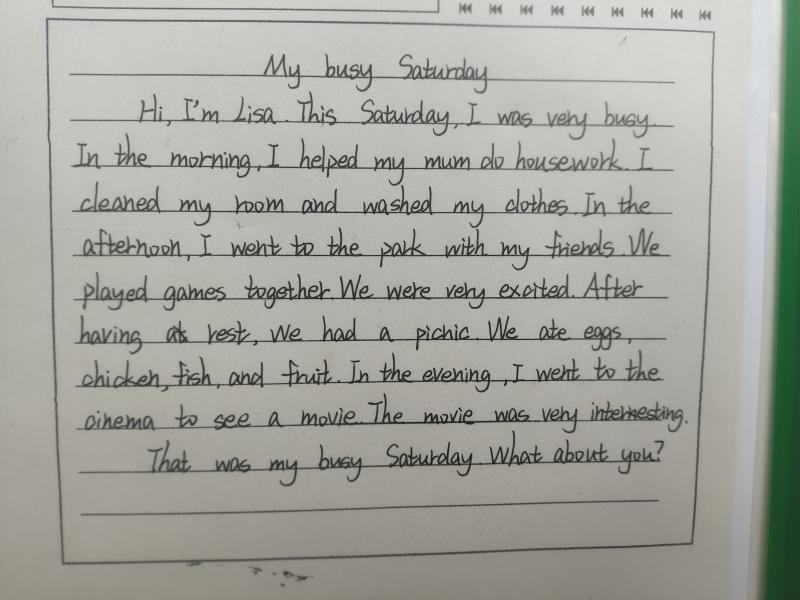 My busy Saturday
Hi, I'm Lisa. This Saturday, I was very busy.
In the morning, I helped my mum do housework. I
cleaned my room and washed my clothes. In the
afternoon, I went to the park with my friends. We
played games together. We were very excited. After
having a rest, we had a picnic. We ate eggs,
chicken, fish, and fruit. In the evening, I went to the
cinema to see a movie. The movie was very interesting.
That was my busy Saturday. What about you?